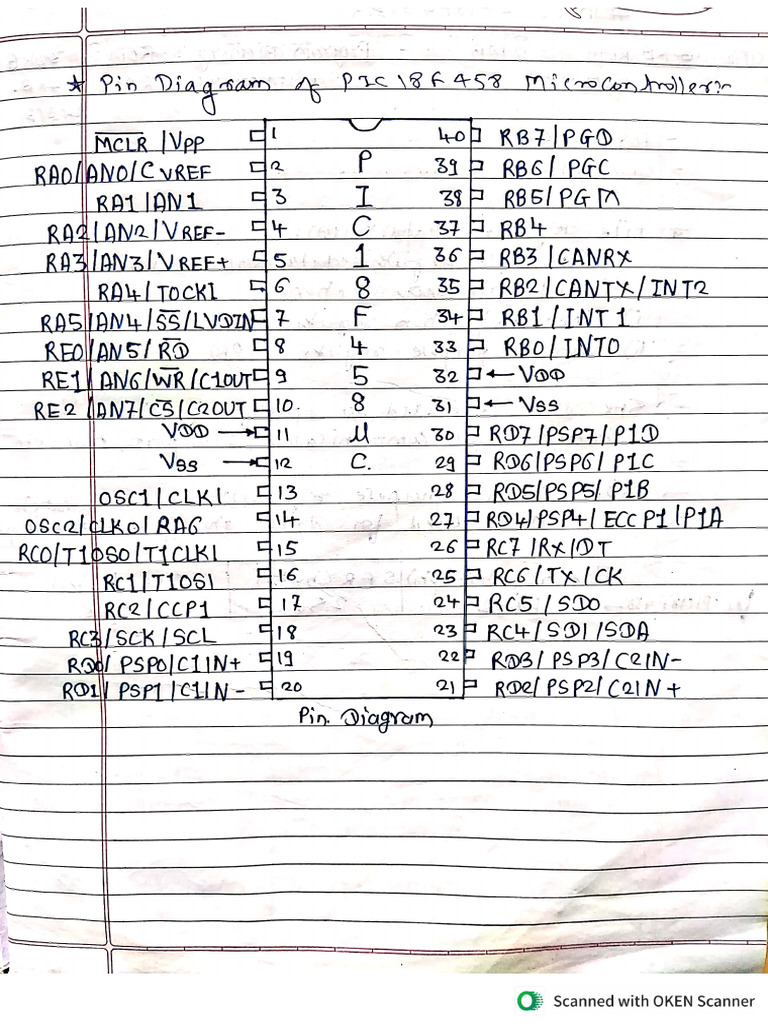 * Pin Diagram of PIC18F458 Microcontroller:-
MCLR / VPP 1 40 RB7/PGD
RA0/AN0/CVREF 2 P 39 RB6/ PGC
RA1/AN1 3 I 38 RB5/PGM
RA2/AN2/VREF- 4 C 37 RB4
RA3/AN3/VREF+ 5 1 36 RB3 /CANRX
RA4/TOCKI 6 8 35 RB2/CANTX/INT2
RA5/AN4/SS/LVDIN 7 F 34 RB1 / INT1
RE0/AN5/RD 8 4 33 RB0/INT0
RE1/AN6/WR/C1OUT 9 5 32 ← VDD
RE2/AN7/CS/C2OUT 10. 8 31 ← VSS
VDD → 11 μ 30 RD7/PSP7/P1D
VSS → 12 C. 29 RD6/PSP6/ P1C
OSC1/CLKI 13 28 RD5/PSP5/ P1B
OSC2/CLKO/RA6 14 27 RD4/PSP4/ECCP1/P1A
RC0/T1OSO/T1CLKI 15 26 RC7 /RX/DT
RC1/T1OSI 16 25 RC6/TX/CK
RC2/CCP1 17 24 RC5 / SDO
RC3/SCK/SCL 18 23 RC4/SDI/SDA
RD0/ PSP0/C1IN+ 19 22 RD3/ PSP3/C2IN-
RD1/ PSP1/C1IN- 20 21 RD2/ PSP2/C2IN+
Pin. Diagram
Scanned with OKEN Scanner